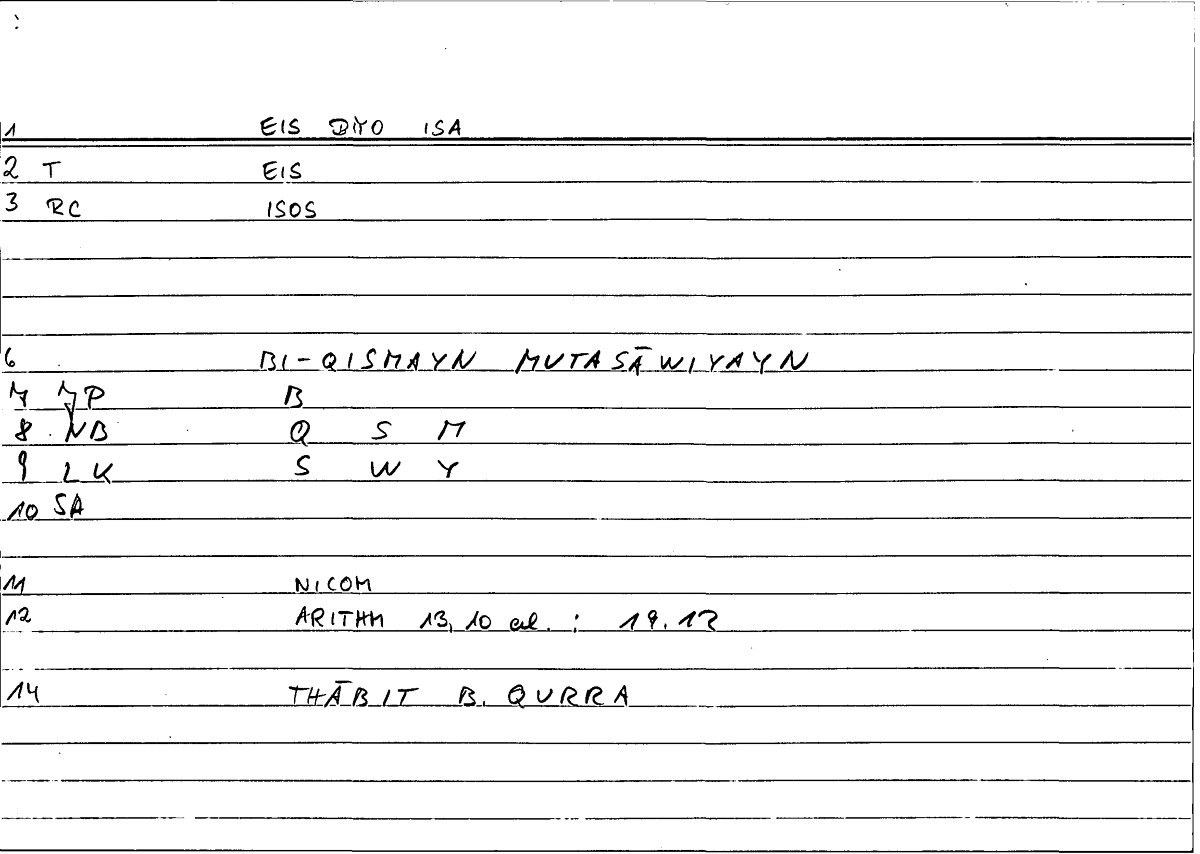 1 EIS DYO ISA
2 T EIS
3 RC ISOS
6 BI-QISMAYN MUTASĀWIYAYN
7 JP B
8 NB Q S M
9 LK S W Y
10 SA
11 NICOM
12 ARITHM 13, 10 al. : 19.12
14 THĀBIT B. QURRA